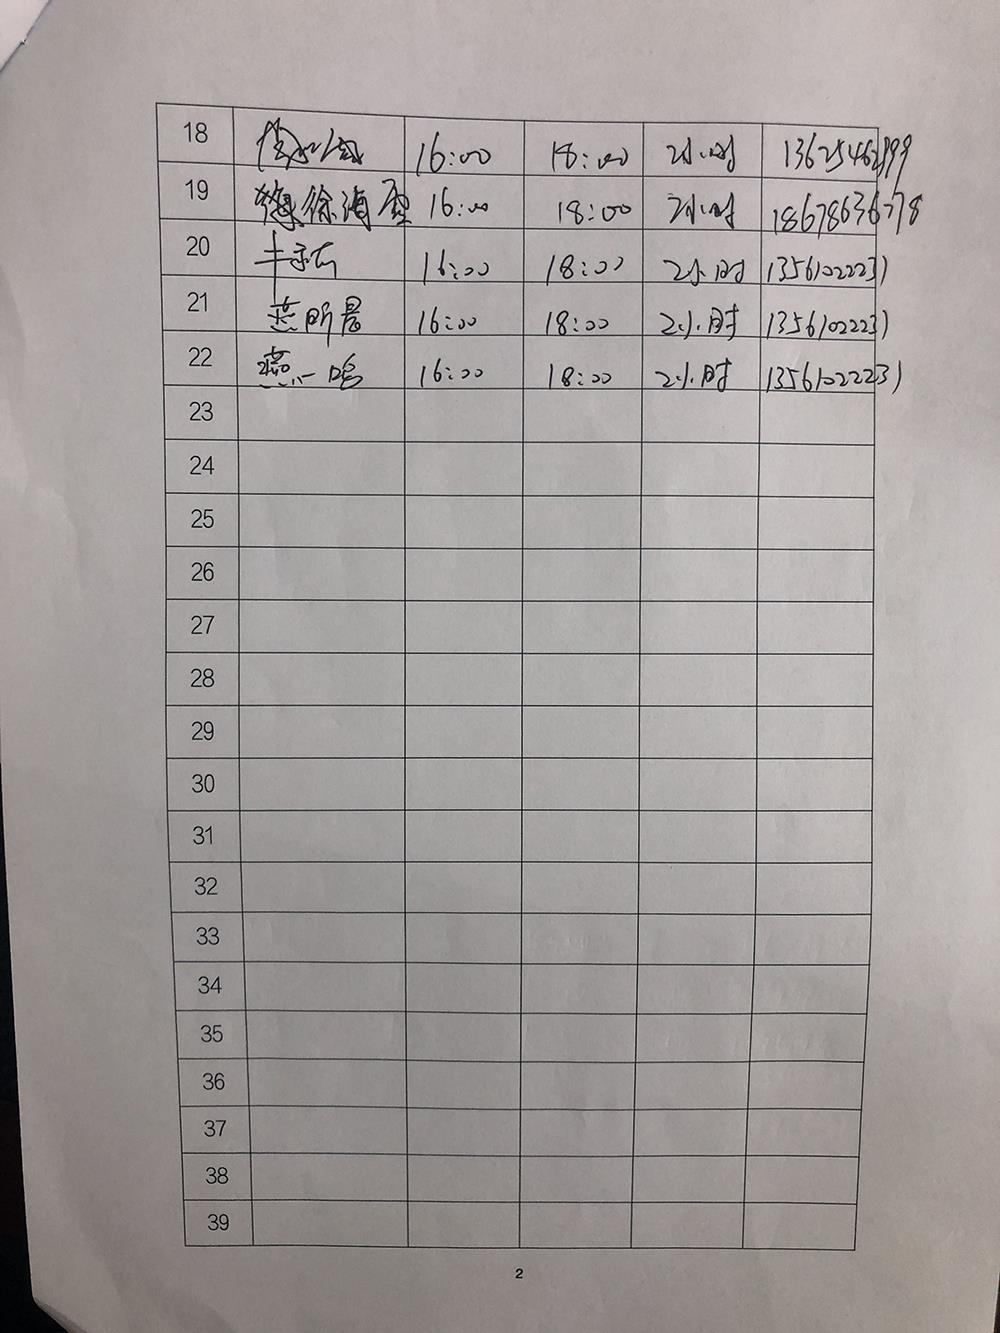 18 16:00 18:00 2小时 13625462999
19 徐海 16:00 18:00 2小时 18678636778
20 16:00 18:00 2小时 13561022231
21 燕昕晨 16:00 18:00 2小时 13561022231
22 燕一鸣 16:00 18:00 2小时 13561022231
23
24
25
26
27
28
29
30
31
32
33
34
35
36
37
38
39
2